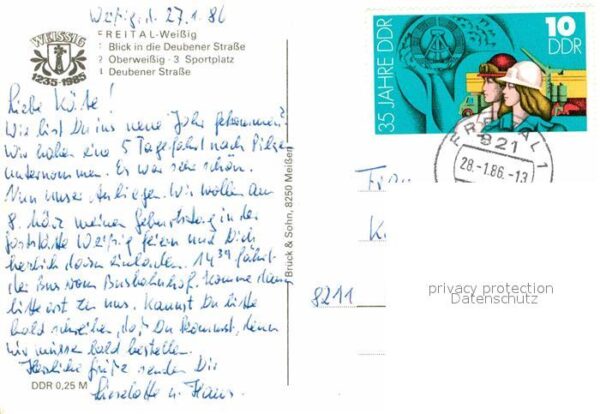 Weißig, d. 27.1.86
WEISSIG
1235-1985
FREITAL-Weißig
1 Blick in die Deubener Straße
2 Oberweißig · 3 Sportplatz
4 Deubener Straße
Liebe Käte!
Wie bist Du ins neue Jahr gekommen?
Wir haben eine 5 Tagefahrt nach Pilsen
unternommen. Es war sehr schön.
Nun unser Anliegen. Wir wollen am
8. März meinen Geburtstag in der
Gaststätte Weißig feiern und Dich
herzlich dazu einladen. 14³⁹ fährt
der Bus vom Busbahnhof. Komme dann
bitte erst zu uns. Kannst Du bitte
bald schreiben, ob Du kommst, denn
wir müssen bald bestellen.
Herzliche Grüße senden Dir
Lieselotte u. Hans.
DDR 0,25 M
Brück & Sohn, 8250 Meißen
35 JAHRE DDR
10
DDR
FREITAL 1
821
28.-1.86.-13
Frau
K
8211
privacy protection
Datenschutz